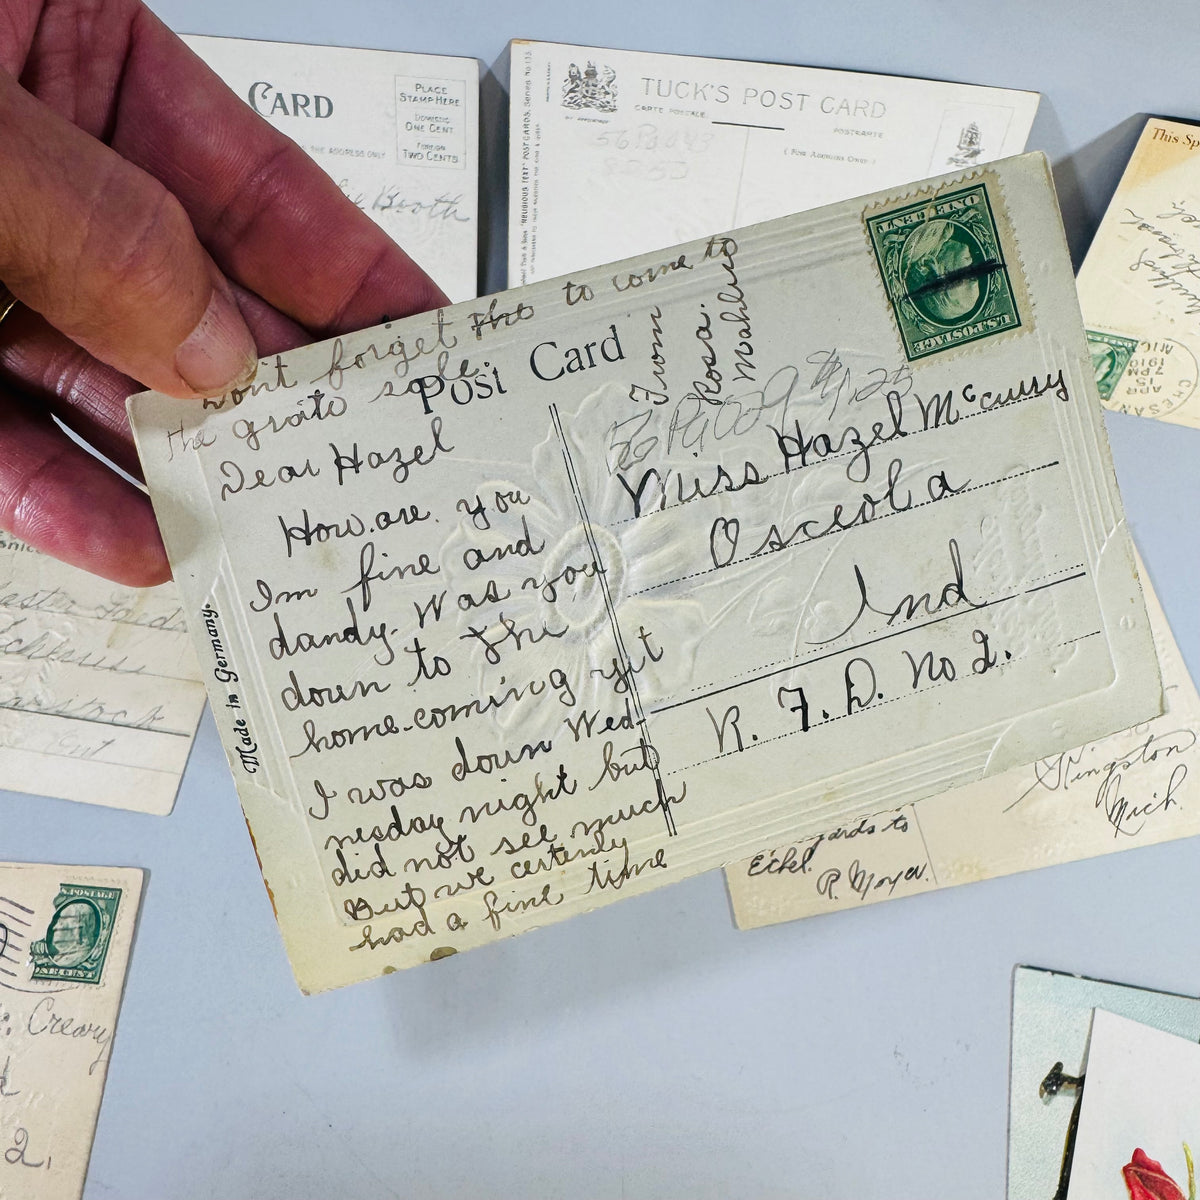 CARD
PLACE
STAMP HERE
DOMESTIC
ONE CENT
FOREIGN
TWO CENTS
THE ADDRESS ONLY
Booth
TUCK'S POST CARD
CARTE POSTALE.
POSTKARTE
(For Address Only.)
This Sp
Don't forget the to come to
the grato sale.
Post Card
From
Rosa.
Dear Hazel
How are you
Im fine and
dandy. Was you
down to the
home-coming yit
I was down Wed-
nesday night but
did not see much
But we certenly
had a fine time
Made in Germany.
ONE CENT
U.S. POSTAGE
Miss Hazel McCurry
Osceola
Ind
R. F. D. No 2.
Kingston
Mich.
gards to
Ethel.
R. Moyer.
APR
1910
7 PM
CHESAN
U.S. POSTAGE
ONE CENT
Creary
2.